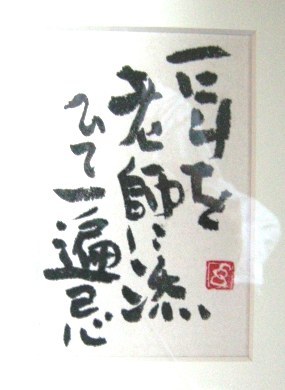 一日を
老師に添
ひて一遍忌